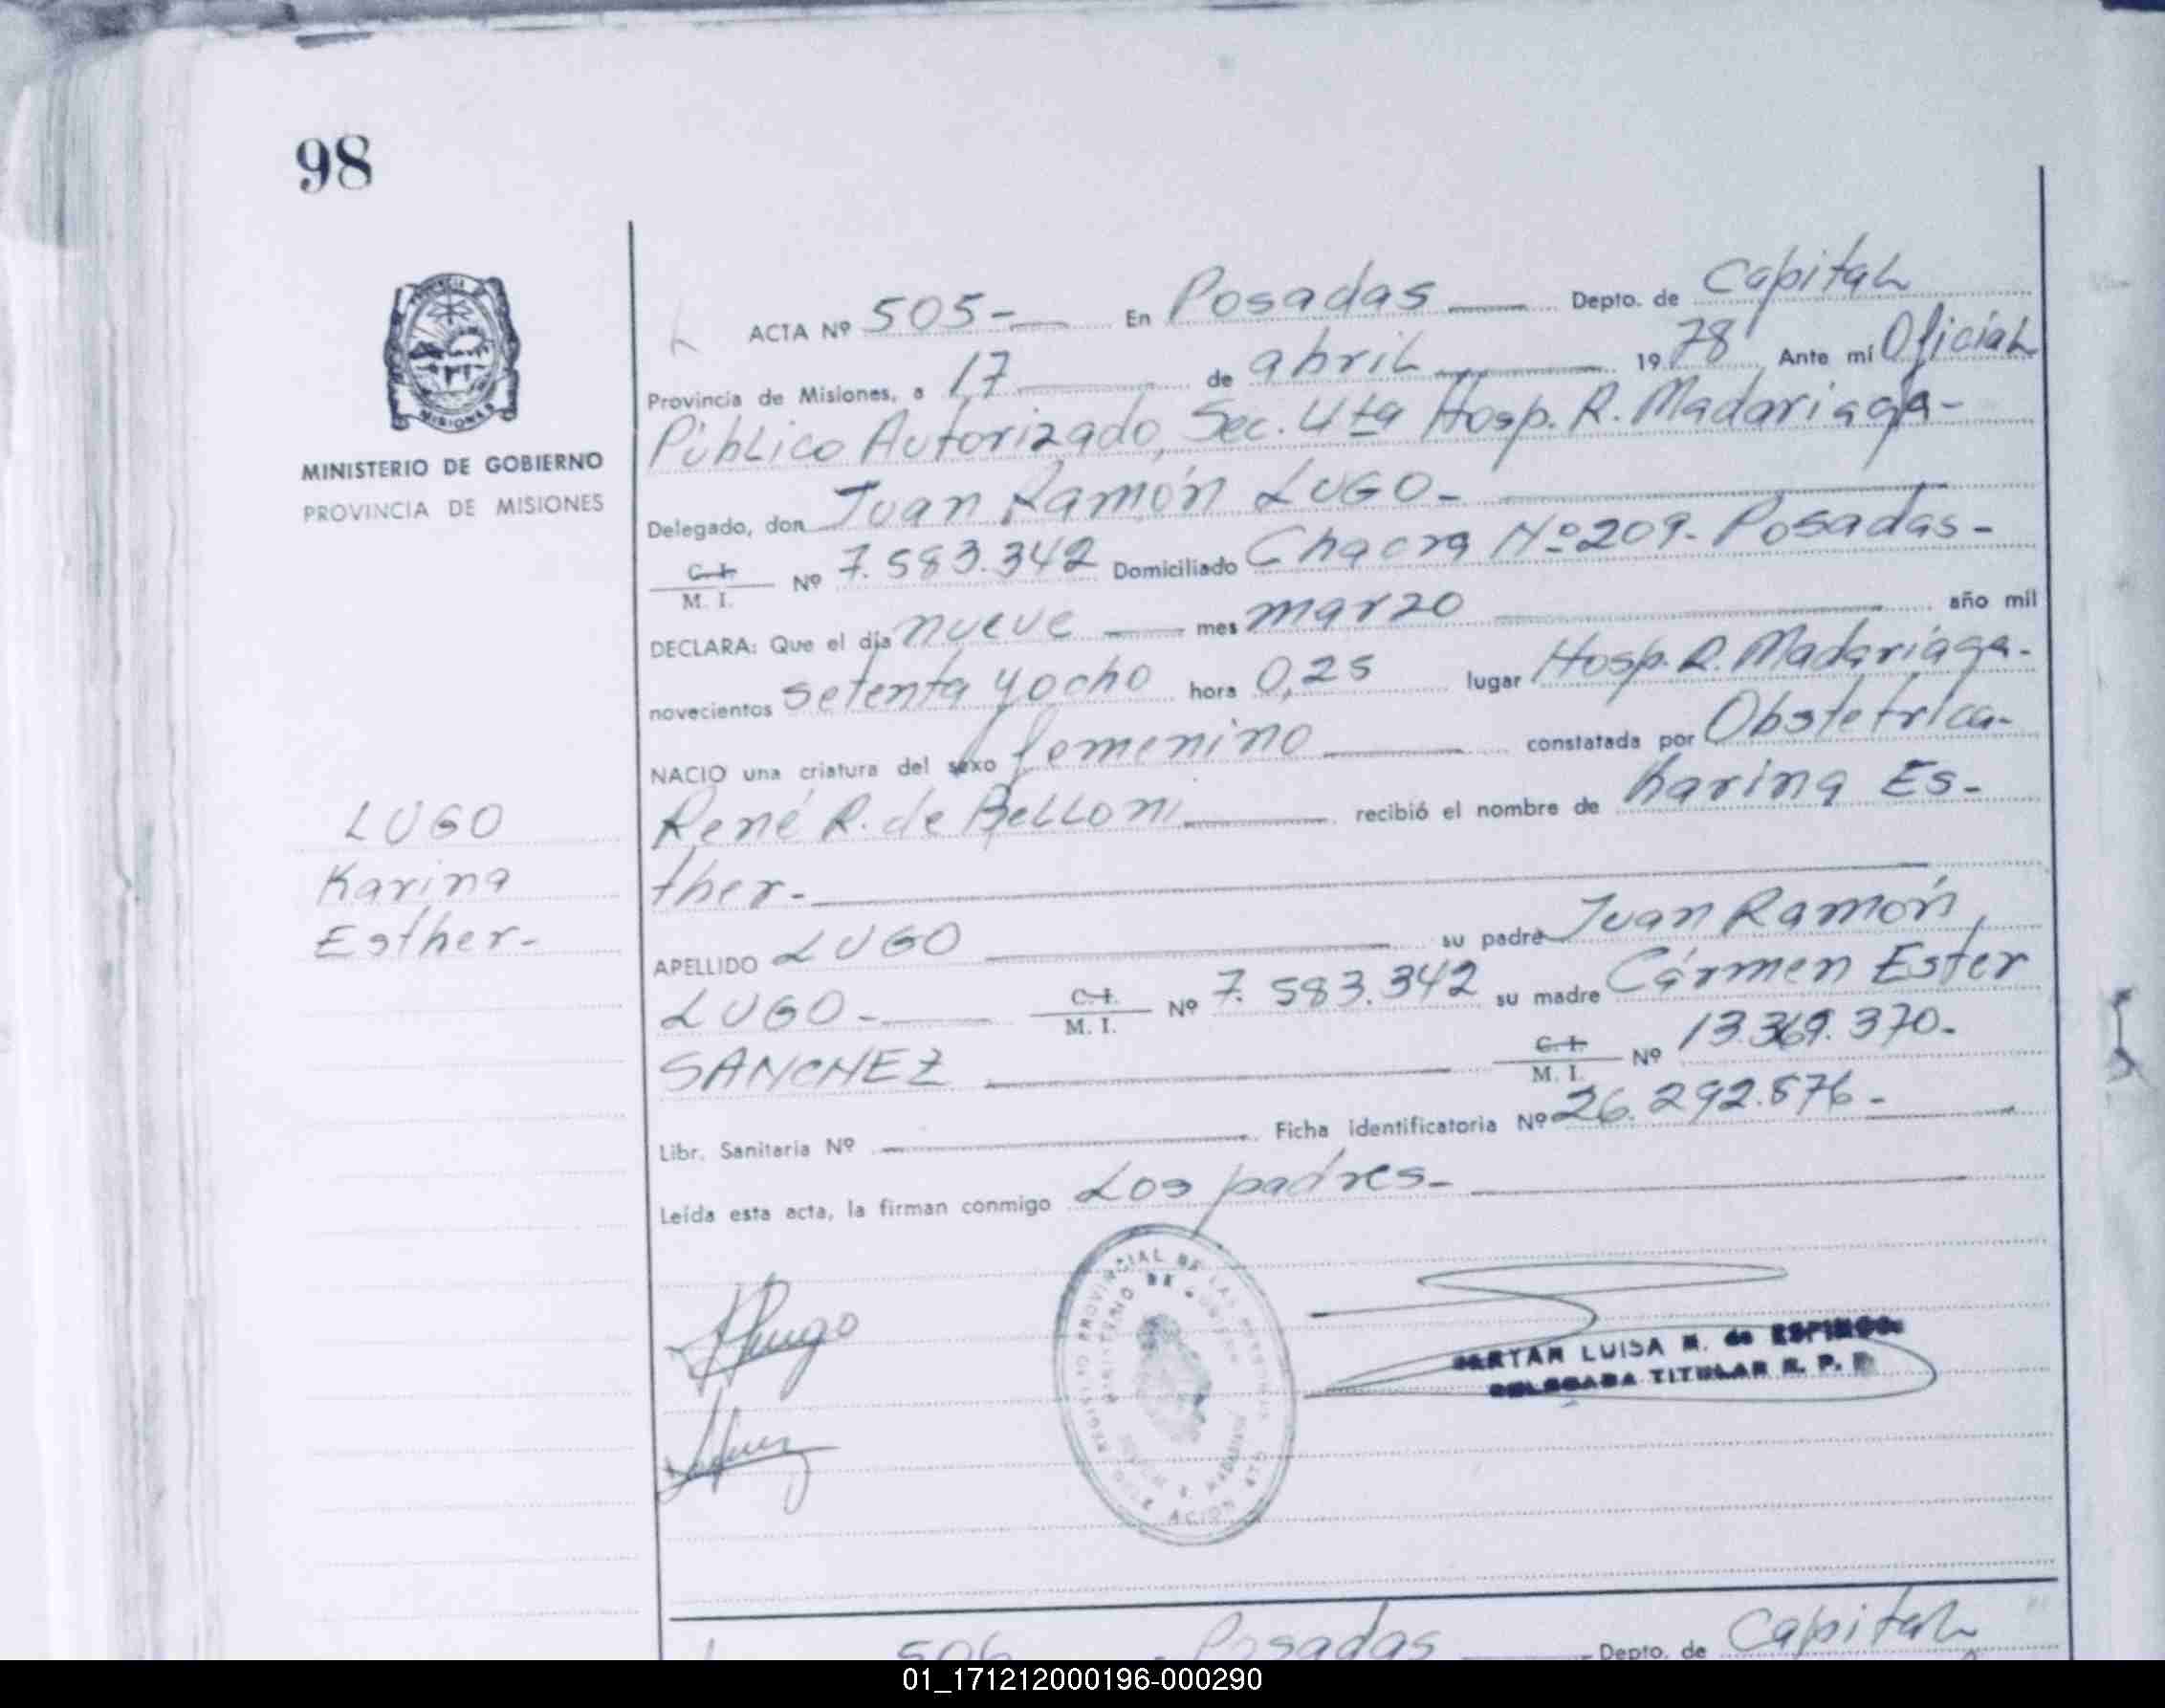 98
PROVINCIA
MISIONES
MINISTERIO DE GOBIERNO
PROVINCIA DE MISIONES
LUGO
Karina
Esther-
ACTA Nº 505- En Posadas Depto. de Capital
Provincia de Misiones, a 17 de abril 1978 Ante mí Oficial
Público Autorizado, Sec. 4ta Hosp. R. Madariaga-
Delegado, don Juan Ramón LUGO-
C. I. / M. I. Nº 7.583.342 Domiciliado Chacra Nº209- Posadas-
DECLARA: Que el día nueve mes marzo año mil
novecientos setenta y ocho hora 0,25 lugar Hosp. R. Madariaga-
NACIO una criatura del sexo femenino constatada por Obstetrica-
René R. de Belloni recibió el nombre de Karina Es-
ther-
APELLIDO LUGO su padre Juan Ramón
LUGO- C. I. / M. I. Nº 7.583.342 su madre Cármen Ester
SANCHEZ C. I. / M. I. Nº 13.369.370-
Libr. Sanitaria Nº Ficha identificatoria Nº 26.292.876-
Leída esta acta, la firman conmigo Los padres-
LUISA M. de
DELEGADA TITULAR R. P.
506 Posadas Depto. de Capital
01_171212000196-000290